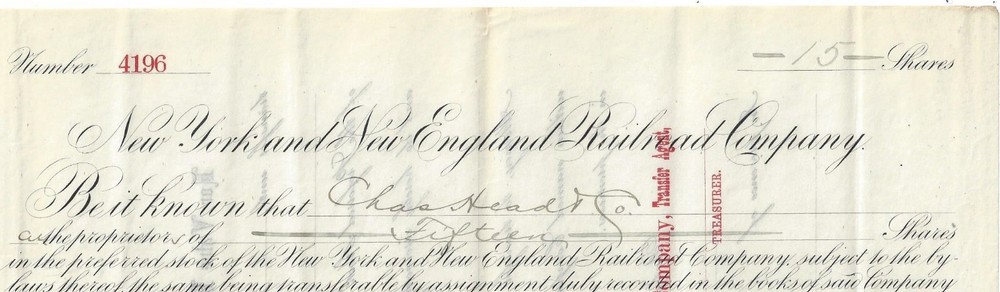 Number 4196 — 15 — Shares
New York and New England Railroad Company.
Be it known that Chas Head & Co.
are the proprietors of Fifteen Shares
in the preferred stock of the New York and New England Railroad Company, subject to the by-
laws thereof, the same being transferable by assignment duly recorded in the books of said Company
ompany, Transfer Agent,
TREASURER.